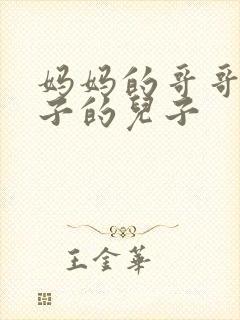 妈妈的哥哥
子的兒子
王金華